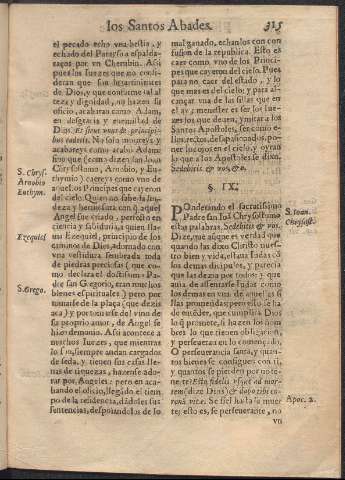 los Santos Abades.
315
el pecado echo vna bestia, y
echado del Parayso a espalda-
raços por vn Cherubin. Assi
pues los juezes que no consi-
deran que son lugartinientes
de Dios, y que conforme tal al
teza y dignidad, no hazen su
oficio, acabaran como Adam,
en desgracia y enemistad de
Dios. Et sicut vnus de principi-
bus cadetis. No solo morireys y
acabareys como acabò Adam:
sino que (como dizen san Ioan
Chrysostomo, Arnobio, y Eu-
thymio) caereys como vno de
aquellos Principes que cayeron
del cielo. Quien no sabe la lin-
deza y hermosura con q aquel
Angel fue criado, perfeto en
ciencia y sabiduria, a quien lla-
ma Ezequiel, principio de los
caminos de Dios, adornado con
vna vestidura sembrada toda
de piedras preciosas (que co-
mo declara el doctissimo Pa-
dre san Gregorio, eran muchos
bienes espirituales) pero por
tomarse de la plaça (que dezia
acà) y por tomarse del vino de
su proprio amor, de Angel se
hizo demonio. Assi acontece a
muchos juezes, que mientras
lo son, siempre andan cargados
de seda, y tienen sus casas lle-
nas de riquezas, hazense ado-
rar por Angeles: pero en aca-
bando el oficio, llegado el tiem
po de la residencia, dadoles sus
sentencias, despojandolos de lo
S. Chrys.
Arnobio
Euthym.
Ezequiel.
S. Grego.
mal ganado, echan los con con
fusion de la republica. Esto es
caer como vno de los Princi-
pes que cayeron del cielo. Pues
para no caer del estado, y lo
que mas es del cielo: y para al-
cançar vna de las sillas que en
el ay, menester es ser los jue-
zes de los que deuen, ymitar a los
Santos Apostoles, ser como e-
llos rectos, desapassionados, po-
ner los ojos en el cielo, y oyran
lo que a los Apostoles se dixo.
Sedebitis & vos, &c.
§ IX.
POnderando el sacratissimo
Padre san Ioã Chrysostomo
estas palabras. Sedebitis & vos.
Dize, que aunque es verdad que
quando las dixo Christo nues-
tro bien y vida, estauan todas có
los demas dicipulos, y parecia
que las dezia por todos: y que
auia de assentarse Iudas como
los demas en vna de aquellas si-
llas prometidas: pero esto se ha
de entéder, que cumplirà Dios
lo q promete, si hazen los hom
bres lo que tienen obligacion,
y perseueran en lo començado.
O perseuerancia santa, y quan-
tos bienes se consiguen con ti,
y quantos se pierden por no te-
nerte! Esto fidelis vsque ad mor-
tem (dize Dios) & dabo tibi co-
ronã vitæ. Se fiel hasta la muer
te: esto es, se perseuerante, no
vn
S. Ioan.
Chrysosto.
Apoc. 2.